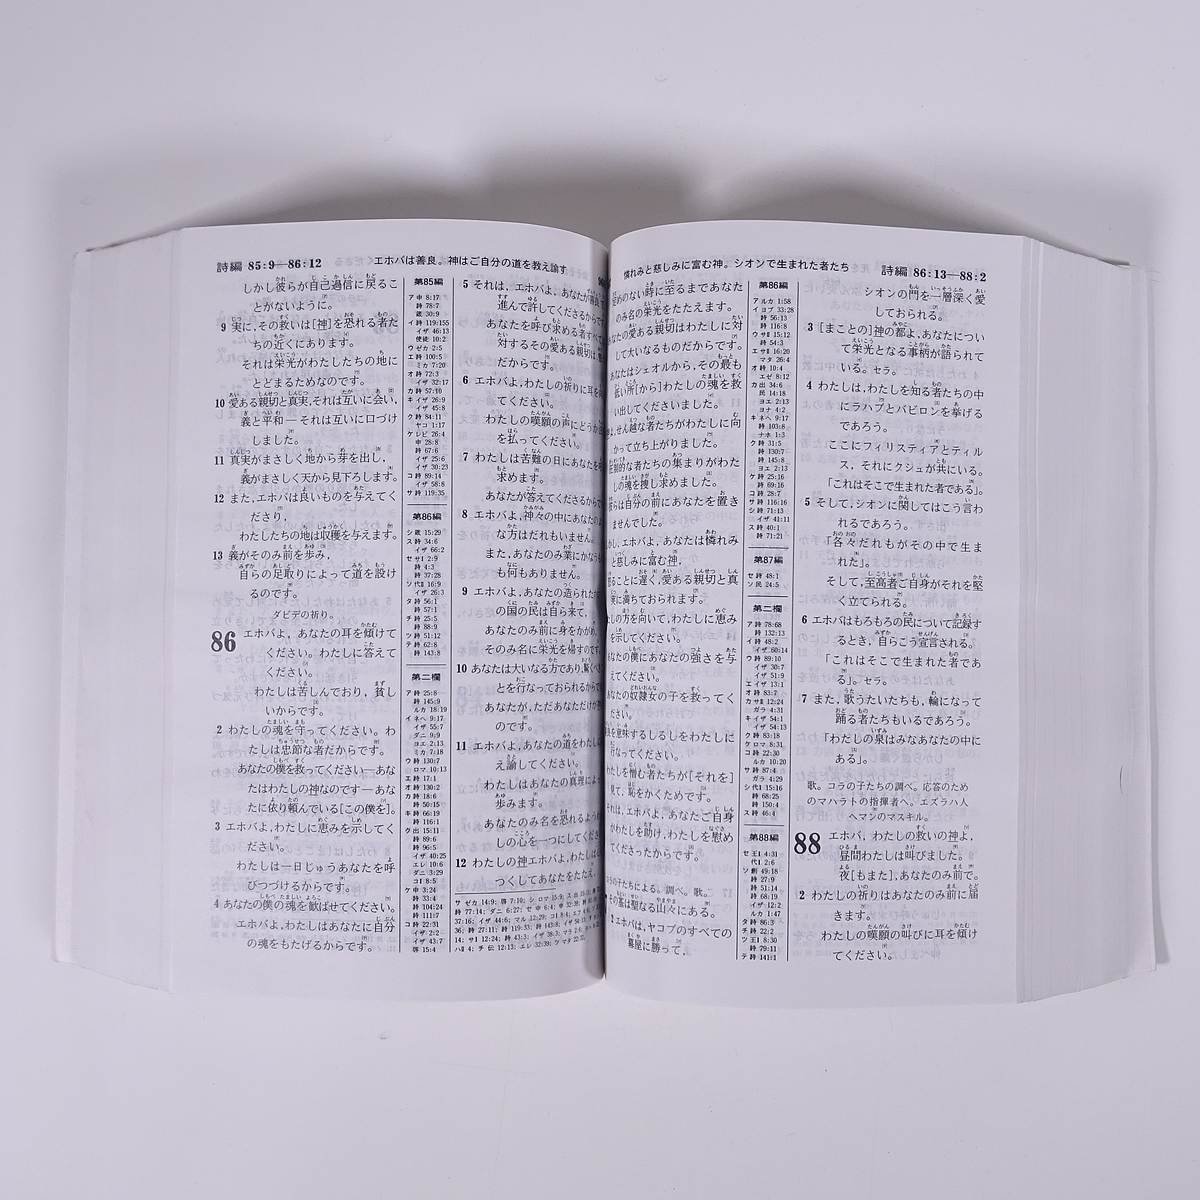 詩編 85:9—86:12
エホバは善良。神はご自分の道を教え諭す
しかし彼らが自己過信に戻るこ
とがないように。
9 実に,その救いは[神]を恐れる者た
ちの近くにあります。
それは栄光がわたしたちの地に
とどまるためなのです。
10 愛ある親切と真実,それは互いに会い,
義と平和—それは互いに口づけ
しました。
11 真実がまさしく地から芽を出し,
義がまさしく天から見下ろします。
12 また,エホバは良いものを与えてく
ださり,
わたしたちの地は収穫を与えます。
13 義がそのみ前を歩み,
自らの足取りによって道を設け
るのです。
ダビデの祈り。
86 エホバよ,あなたの耳を傾けて
ください。わたしに答えて
ください。
わたしは苦しんでおり,貧し
いからです。
2 わたしの魂を守ってください。わ
たしは忠節な者だからです。
あなたの僕を救ってください—あな
たはわたしの神なのです—あな
たに依り頼んでいる[この僕]を。
3 エホバよ,わたしに恵みを示してく
ださい。
わたしは一日じゅうあなたを呼
びつづけるからです。
4 あなたの僕の魂を歓ばせてください。
エホバよ,わたしはあなたに自分
の魂をもたげるからです。
第85編
ア 申 8:17
詩 78:7
箴 30:9
イ 詩 119:155
イザ 46:13
使徒 10:2
ウ ゼカ 2:5
エ 詩 100:5
ミカ 7:20
オ 詩 72:3
イザ 32:17
カ 詩 57:10
キ イザ 26:9
イザ 45:8
ク 詩 84:11
ヤコ 1:17
ケ レビ 26:4
申 28:8
詩 67:6
イザ 25:6
イザ 30:23
コ 詩 89:14
イザ 58:8
サ 詩 119:35
第86編
シ 箴 15:29
ス 詩 34:6
イザ 66:2
セ サI 2:9
詩 4:3
詩 37:28
ソ 代II 16:9
イザ 26:3
タ 詩 56:1
詩 57:1
チ 詩 25:5
詩 88:9
ツ 詩 51:12
テ 詩 62:8
詩 143:8
第二欄
ア 詩 25:8
詩 145:9
ルカ 18:19
イ ネヘ 9:17
イザ 55:7
ダニ 9:9
ヨエ 2:13
ミカ 7:18
ウ 詩 130:7
ロマ 10:13
エ 詩 17:1
オ 詩 130:2
カ 詩 18:6
詩 50:15
キ 詩 66:19
詩 116:1
ク 出 15:11
詩 89:6
詩 96:5
イザ 40:25
エレ 10:6
ダニ 3:29
コI 8:5
ケ 申 3:24
詩 33:4
詩 104:24
詩 111:7
コ 詩 22:31
イザ 2:2
イザ 43:7
啓 15:4
5 それは,エホバよ,あなたが善良で,
進んで許してくださるからで
あなたを呼び求める者すべて
対するその愛ある親切は
だからです。
6 エホバよ,わたしの祈りに耳を
てください。
わたしの嘆願の声にどうか
を払ってください。
7 わたしは苦難の日にあなたを
求めます。
あなたが答えてくださるから
8 エホバよ,神々の中にあなたの
な方はだれもいません。
また,あなたのみ業にかなう
も何もありません。
9 エホバよ,あなたの造られた
の国の民は自ら来て,
あなたのみ前に身をかがめ,
そのみ名に栄光を帰すので
10 あなたは大いなる方であり,驚くべ
とを行なっておられるから
あなたが,ただあなただけが
のです。
11 エホバよ,あなたの道をわたしに
え諭してください。
わたしはあなたの真理によ
歩みます。
あなたのみ名を恐れるよう
しの心を一つにしてくださ
12 わたしの神エホバよ,わたしは心
つくしてあなたをたたえ,
憐れみと慈しみに富む神。シオンで生まれた者たち
詩編 86:13—88:2
定めのない時に至るまであなた
のみ名の栄光をたたえます。
の愛ある親切はわたしに対
して大いなるものだからです。
あなたはシェオルから,その最も
低い所[から]わたしの魂を救
い出してくださいました。
よ,せん越な者たちがわたしに向
かって立ち上がりました。
圧制的な者たちの集まりがわた
しの魂を捜し求めました。
彼らは自分の前にあなたを置き
ませんでした。
しかし,エホバよ,あなたは憐れみ
と慈しみに富む神,
怒ることに遅く,愛ある親切と真
実に満ちておられます。
の方を向いて,わたしに恵み
を示してください。
あなたの僕にあなたの強さを与
えてください。
あなたの奴隷女の子を救ってく
ださい。
を意味するしるしをわたしに
行なってください。
わたしを憎む者たちが[それを]
見て,恥をかくためです。
それは,エホバよ,あなたご自身
がわたしを助け,わたしを慰めて
くださったからです。
コラの子たちによる。調べ。歌。
その基は聖なる山々にある。
2 エホバは,ヤコブのすべての
幕屋に勝って,
第86編
ア ルカ 1:58
イ ヨブ 33:28
詩 56:13
詩 116:8
ウ サII 15:12
詩 54:3
エ サII 16:20
マタ 26:4
オ 詩 10:4
エゼ 8:12
カ 出 34:6
民 14:18
ヨエ 2:13
ヨナ 4:2
キ ネヘ 9:17
詩 103:8
ナホ 1:3
ク 詩 31:5
詩 130:7
詩 145:8
ヨエ 2:13
ケ 詩 25:16
詩 69:16
コ 詩 28:7
サ 詩 116:16
シ 詩 71:13
イザ 41:11
ス 詩 40:1
詩 71:21
第87編
セ 詩 48:1
ソ 民 24:5
第二欄
ア 詩 78:68
詩 132:13
イ 詩 48:2
イザ 60:14
ウ 詩 89:10
イザ 30:7
イザ 51:9
エ イザ 13:1
オ 詩 83:7
カ サII 12:24
ガラ 4:31
キ イザ 54:1
イザ 54:13
ク 詩 83:18
ケ ロマ 8:31
コ 詩 22:30
ルカ 10:20
サ 詩 87:4
ガラ 4:29
シ 代I 15:16
詩 68:25
詩 150:4
ス 詩 46:4
第88編
セ 王I 4:31
代I 2:6
ソ 創 49:18
詩 27:9
詩 51:14
詩 68:19
イザ 12:2
ルカ 1:47
タ 詩 86:3
チ 詩 22:2
ツ 王I 8:30
詩 79:11
テ 詩 141:1
シオンの門を一層深く愛
しておられる。
3 [まことの]神の都よ,あなたについ
て栄光となる事柄が語られて
いる。セラ。
4 わたしは,わたしを知る者たちの中
にラハブとバビロンを挙げる
であろう。
ここにフィリスティアとティル
ス,それにクシュが共にいる。
「これはそこで生まれた者である」。
5 そして,シオンに関してはこう言わ
れるであろう。
「各々だれもがその中で生ま
れた」。
そして,至高者ご自身がそれを堅
く立てられる。
6 エホバはもろもろの民について記録す
るとき,自らこう宣言される。
「これはそこで生まれた者であ
る」。セラ。
7 また,歌うたいたちも,輪になって
踊る者たちもいるであろう。
「わたしの泉はみなあなたの中に
ある」。
歌。コラの子たちの調べ。応答のため
のマハラトの指揮者へ。エズラハ人
ヘマンのマスキル。
88 エホバ,わたしの救いの神よ,
昼間わたしは叫びました。
夜[もまた],あなたのみ前で。
2 わたしの祈りはあなたのみ前に届
きます。
わたしの嘆願の叫びに耳を傾け
てください。